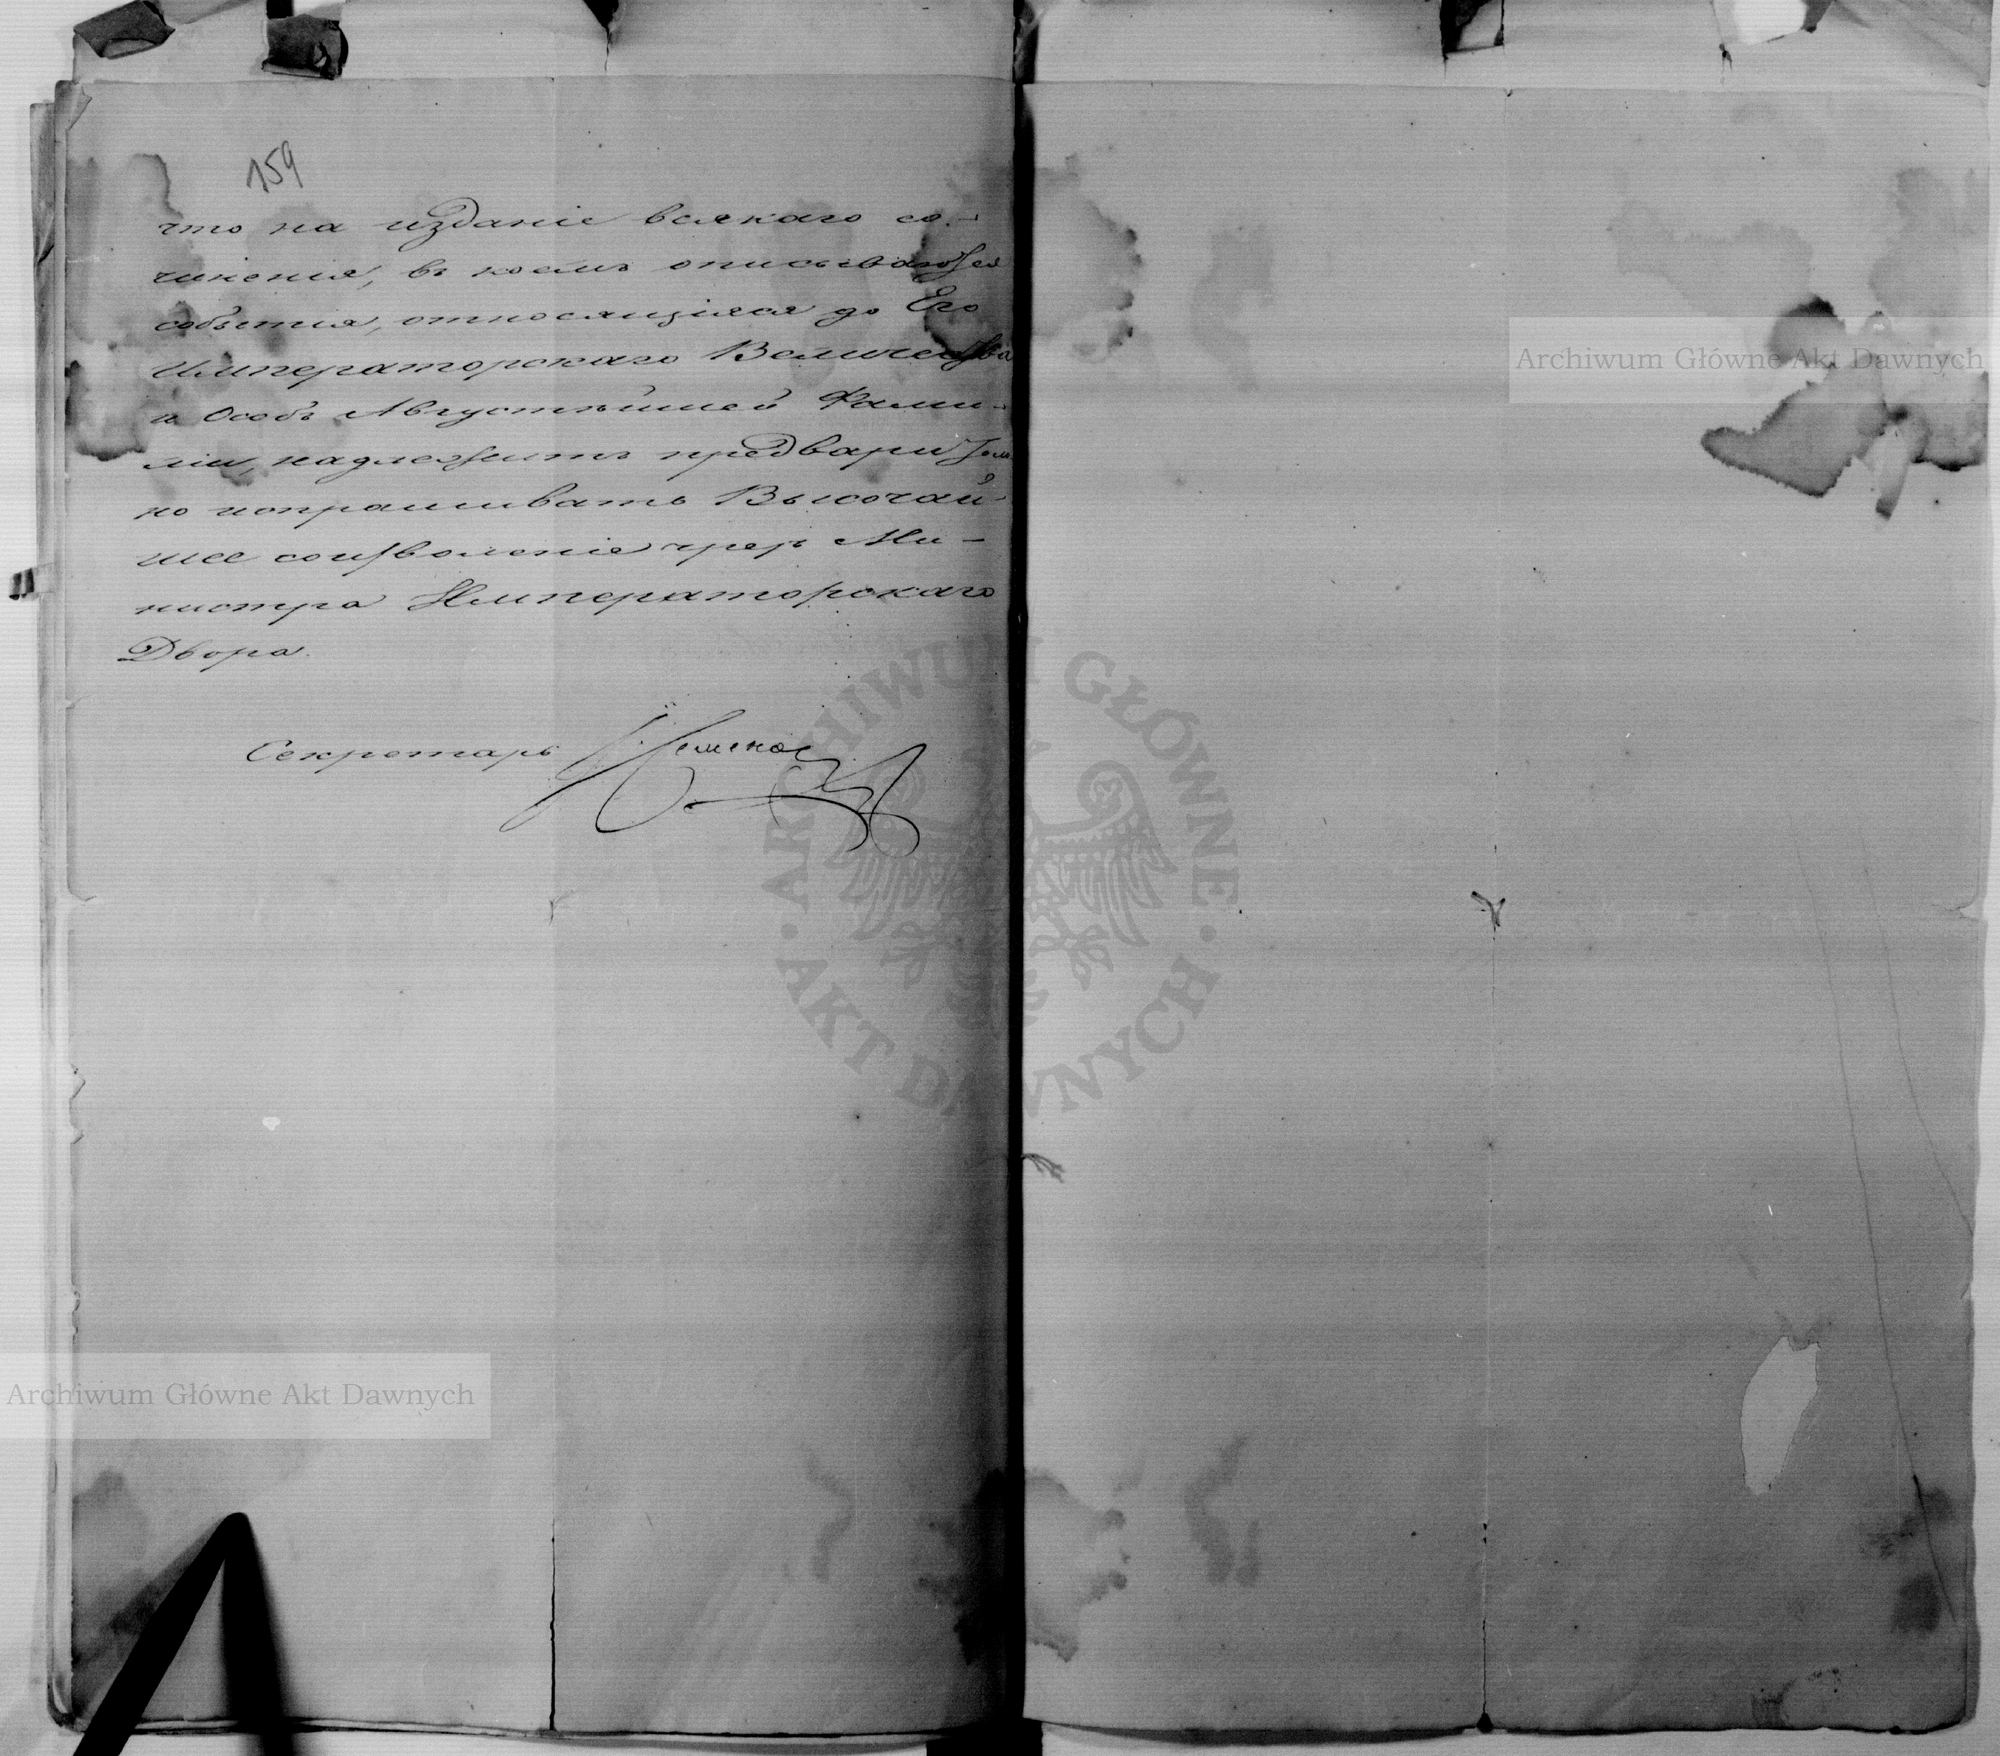 159
что на изданіе всякаго со-
чиненія, въ коемъ описываются
событія, относящіяся до Его
Императорскаго Величества
и Особъ Августѣйшей Фами-
ліи, надлежитъ предварител-
но испрашивать Высочай-
шее соизволеніе чрезъ Ми-
нистра Императорскаго
Двора.
Секретарь
Archiwum Główne Akt Dawnych
ARCHIWUM GŁÓWNE
AKT DAWNYCH
Archiwum Główne Akt Dawnych